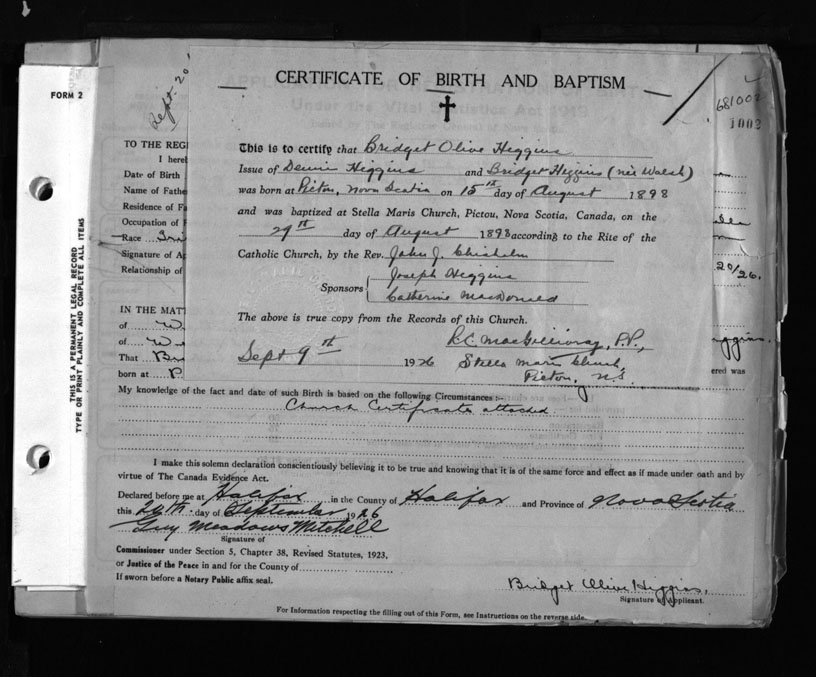 CERTIFICATE OF BIRTH AND BAPTISM
FORM 2
Sept. 20
681002
1002
THIS IS A PERMANENT LEGAL RECORD
TYPE OR PRINT PLAINLY AND COMPLETE ALL ITEMS
This is to certify that Bridget Olive Higgins
Issue of Dennis Higgins and Bridget Higgins (neé Walsh)
was born at Pictou, Nova Scotia on 15th day of August 1898
and was baptized at Stella Maris Church, Pictou, Nova Scotia, Canada, on the
29th day of August 1898 according to the Rite of the
Catholic Church, by the Rev. John J. Chisholm
Sponsors { Joseph Higgins
Catherine MacDonald
The above is true copy from the Records of this Church.
R.C. MacGillivray, P.P.,
Sept 9th 1926 Stella Maris Church,
Pictou, N.S.
TO THE REGI
I hereb
Date of Birth
Name of Fathe
Residence of Fa
Occupation of F
Race Iri
Signature of A
Relationship of
20/26.
IN THE MATT
of W
of W
That Br
born at P
iggins.
ered was
My knowledge of the fact and date of such Birth is based on the following Circumstances :-
Church Certificate attached
I make this solemn declaration conscientiously believing it to be true and knowing that it is of the same force and effect as if made under oath and by
virtue of The Canada Evidence Act.
Declared before me at Halifax in the County of Halifax and Province of Nova Scotia
this 20th day of September 1926
Guy Meadows Mitchell
Signature of
Commissioner under Section 5, Chapter 38, Revised Statutes, 1923,
or Justice of the Peace in and for the County of
If sworn before a Notary Public affix seal.
Bridget Olive Higgins.
Signature of Applicant.
For Information respecting the filling out of this Form, see Instructions on the reverse side.